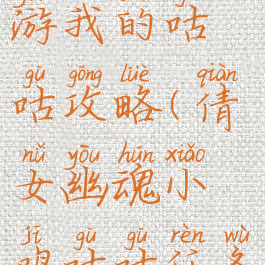 游我的咕
gū gōng lüè qiàn
咕攻略(倩
nǚ yōu hún xiǎo
女幽魂小
jī gū gū rèn wù
鸡咕咕任务